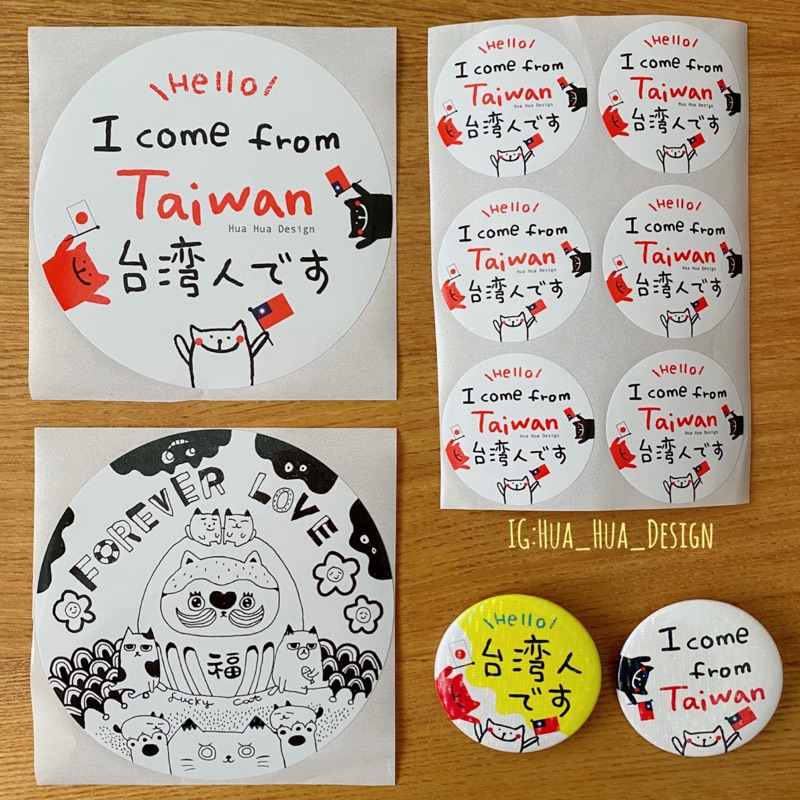 \Hello/
I come from
Taiwan
Hua Hua Design
台湾人です
\Hello/
I come from
Taiwan
Hua Hua Design
台湾人です
\Hello/
I come from
Taiwan
Hua Hua Design
台湾人です
\Hello/
I come from
Taiwan
Hua Hua Design
台湾人です
\Hello/
I come from
Taiwan
Hua Hua Design
台湾人です
\Hello/
I come from
Taiwan
Hua Hua Design
台湾人です
\Hello/
I come from
Taiwan
Hua Hua Design
台湾人です
FOREVER LOVE
福
Lucky Cat
IG:Hua_Hua_Design
\Hello/
台湾人
です
I come
from
Taiwan